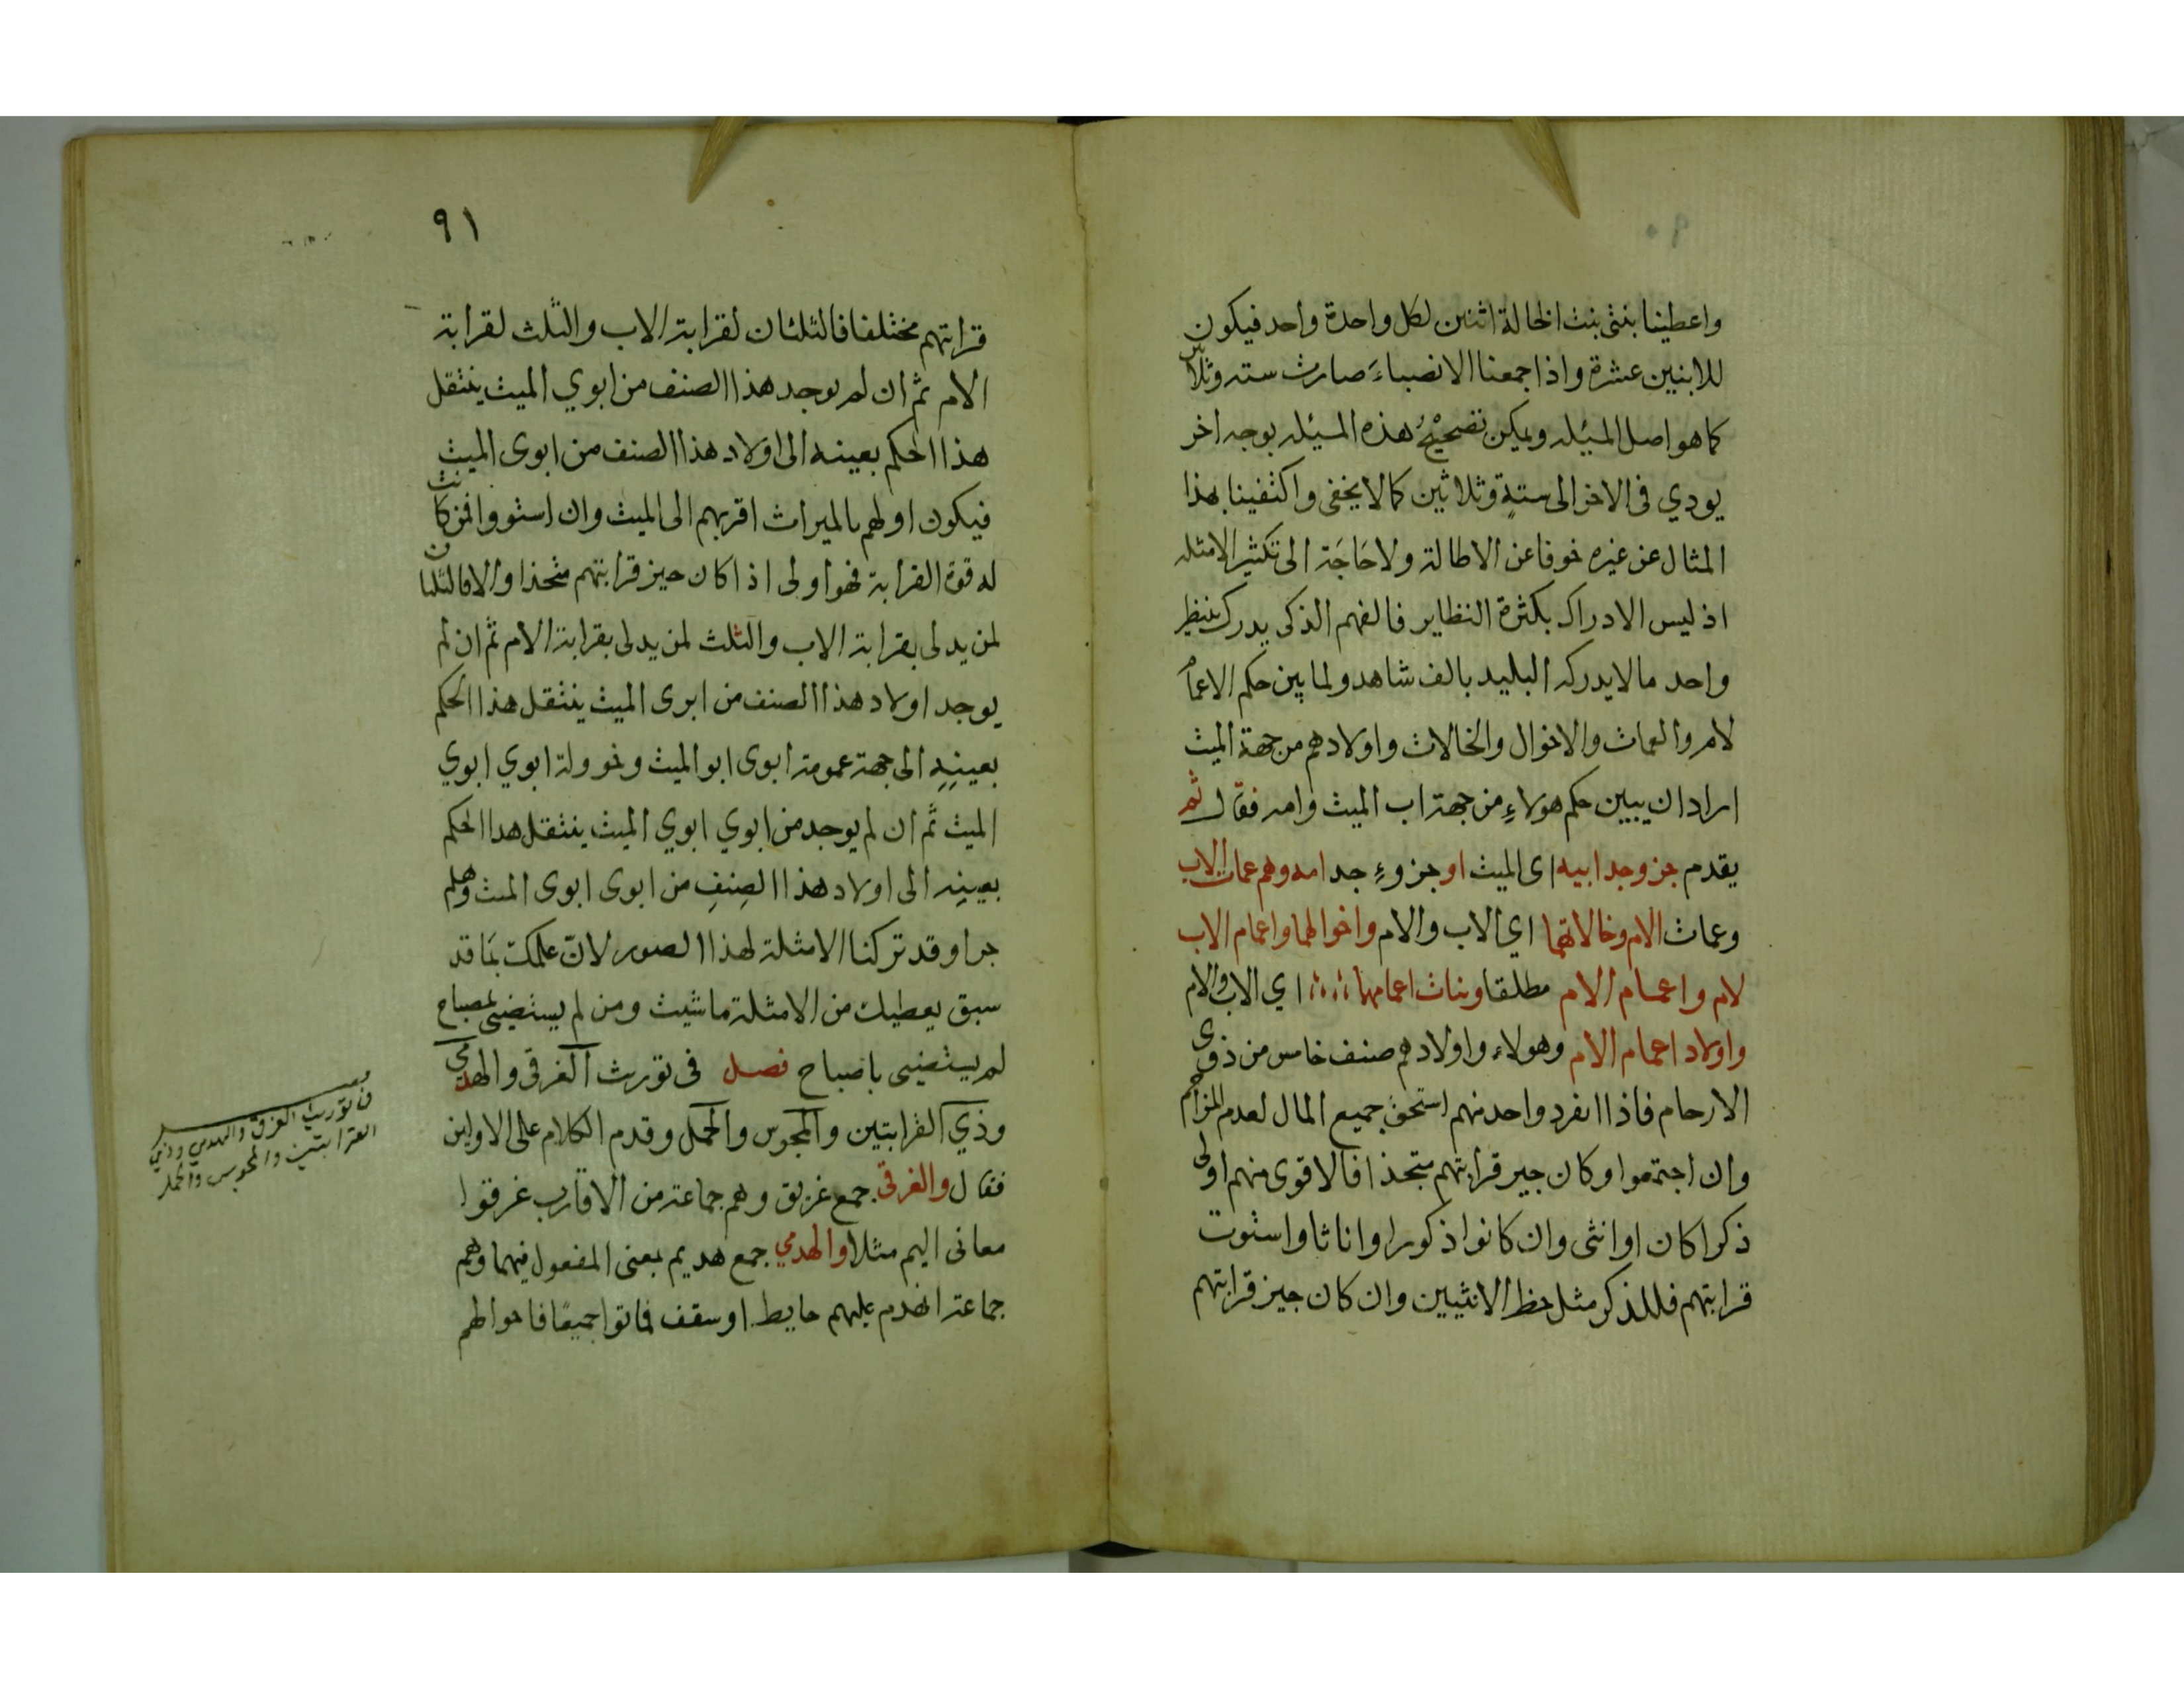 ٩٠
واعطينا بنتى بنت الخالة اثنين لكل واحدة واحد فيكون
للابنين عشرة واذا جمعنا الانصباء صارت سته وثلاثين
كما هو اصل المسئله ويمكن تصحيح هذه المسئله بوجه اخر
يودي فى الاخر الى ستة وثلاثين كما لا يخفى واكتفينا بهذا
المثال عن غيره خوفا عن الاطالة ولا حاجة الى تكثير الامثله
اذ ليس الادراك بكثرة النظاير فالفهم الذكى يدرك بنظير
واحد ما لا يدركه البليد بالف شاهد ولما بين حكم الاعمام
لام والعمات والاخوال والخالات واولادهم من جهة الميت
اراد ان يبين حكم هولاء من جهة اب الميت وامه فقال ثم
يقدم جزو جد ابيه اى الميت او جزوء جد امه وهم عمات الاب
وعمات الام وخالاتهما اي الاب والام واخوالهما واعمام الاب
لام واعمام الام مطلقا وبنات اعمامهما اي الاب والام
واولاد اعمام الام وهولاء واولادهم صنف خامس من ذوى
الارحام فاذا انفرد واحد منهم استحق جميع المال لعدم المزاحم
وان اجتمعوا وكان حيز قرابتهم متحدا فالاقوى منهم اولى
ذكرا كان او انثى وان كانوا ذكورا واناثا واستوت
قرابتهم فللذكر مثل حظ الانثيين وان كان حيز قرابتهم
٩١
قرابتهم مختلفا فالثلثان لقرابة الاب والثلث لقرابة
الام ثم ان لم يوجد هذا الصنف من ابوي الميت ينتقل
هذا الحكم بعينه الى اولاد هذا الصنف من ابوى الميت
فيكون اولهم بالميراث اقربهم الى الميت وان استووا فمن كانت
له قوة القرابة فهو اولى اذا كان حيز قرابتهم متحدا والا فالثلثان
لمن يدلى بقرابة الاب والثلث لمن يدلى بقرابة الام ثم ان لم
يوجد اولاد هذا الصنف من ابوى الميت ينتقل هذا الحكم
بعينه الى جهة عمومة ابوى ابو الميت وخوولة ابوي ابوي
الميت ثم ان لم يوجد من ابوي ابوي الميت ينتقل هذا الحكم
بعينه الى اولاد هذا الصنف من ابوى ابوى الميت وهلم
جرا وقد تركنا الامثلة لهذا الصور لان علمك بما قد
سبق يعطيك من الامثلة ما شيت ومن لم يستضيى بمصباح
لم يستضيى باصباح فصل فى تورث الغرقى والهدمي
وذي القرابتين والمجوس والحمل وقدم الكلام على الاولين
فقال والغرقى جمع غريق وهم جماعة من الاقارب غرقوا
معا فى اليم مثلا والهدمي جمع هديم بمعنى المفعول فيهما وهم
جماعة انهدم عليهم حايط او سقف فماتوا جميعا فاحوالهم
فى توريث الغرقى والهدمى وذي
القرابتين والمجوس والحمل